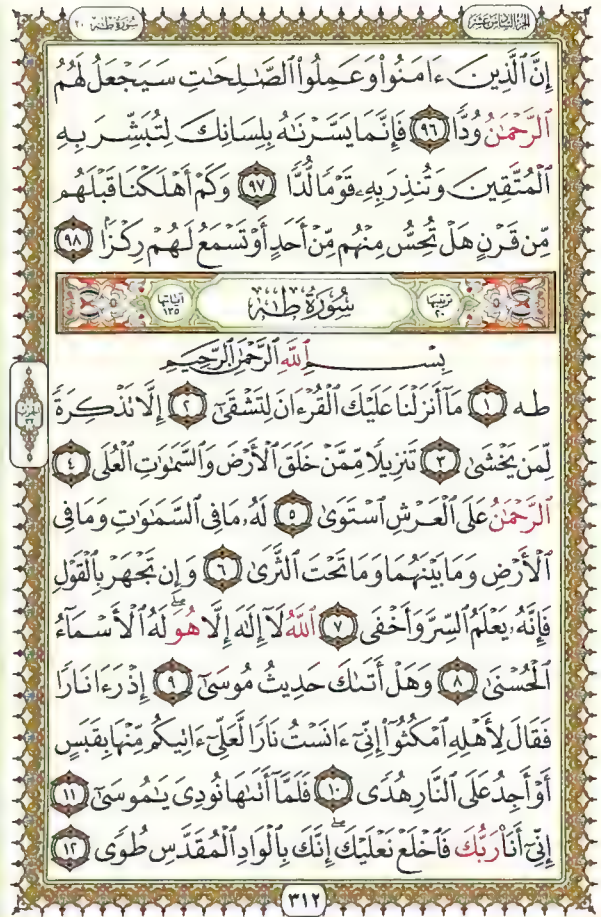 سُورَةُ طه ٢٠
الجُزْءُ السَّادِسَ عَشَرَ
إِنَّ ٱلَّذِينَ ءَامَنُوا۟ وَعَمِلُوا۟ ٱلصَّـٰلِحَـٰتِ سَيَجْعَلُ لَهُمُ
ٱلرَّحْمَـٰنُ وُدًّا ٩٦ فَإِنَّمَا يَسَّرْنَـٰهُ بِلِسَانِكَ لِتُبَشِّرَ بِهِ
ٱلْمُتَّقِينَ وَتُنذِرَ بِهِۦ قَوْمًا لُّدًّا ٩٧ وَكَمْ أَهْلَكْنَا قَبْلَهُم
مِّن قَرْنٍ هَلْ تُحِسُّ مِنْهُم مِّنْ أَحَدٍ أَوْ تَسْمَعُ لَهُمْ رِكْزًۢا ٩٨
ترتيبها ٢٠ سُورَةُ طه آياتها ١٣٥
بِسْمِ ٱللَّهِ ٱلرَّحْمَـٰنِ ٱلرَّحِيمِ
طه ١ مَآ أَنزَلْنَا عَلَيْكَ ٱلْقُرْءَانَ لِتَشْقَىٰٓ ٢ إِلَّا تَذْكِرَةً
لِّمَن يَخْشَىٰ ٣ تَنزِيلًا مِّمَّنْ خَلَقَ ٱلْأَرْضَ وَٱلسَّمَـٰوَٰتِ ٱلْعُلَى ٤
ٱلرَّحْمَـٰنُ عَلَى ٱلْعَرْشِ ٱسْتَوَىٰ ٥ لَهُۥ مَا فِى ٱلسَّمَـٰوَٰتِ وَمَا فِى
ٱلْأَرْضِ وَمَا بَيْنَهُمَا وَمَا تَحْتَ ٱلثَّرَىٰ ٦ وَإِن تَجْهَرْ بِٱلْقَوْلِ
فَإِنَّهُۥ يَعْلَمُ ٱلسِّرَّ وَأَخْفَى ٧ ٱللَّهُ لَآ إِلَـٰهَ إِلَّا هُوَ ۖ لَهُ ٱلْأَسْمَآءُ
ٱلْحُسْنَىٰ ٨ وَهَلْ أَتَىٰكَ حَدِيثُ مُوسَىٰٓ ٩ إِذْ رَءَا نَارًا
فَقَالَ لِأَهْلِهِ ٱمْكُثُوٓا۟ إِنِّىٓ ءَانَسْتُ نَارًا لَّعَلِّىٓ ءَاتِيكُم مِّنْهَا بِقَبَسٍ
أَوْ أَجِدُ عَلَى ٱلنَّارِ هُدًى ١٠ فَلَمَّآ أَتَىٰهَا نُودِىَ يَـٰمُوسَىٰٓ ١١
إِنِّىٓ أَنَا۠ رَبُّكَ فَٱخْلَعْ نَعْلَيْكَ ۖ إِنَّكَ بِٱلْوَادِ ٱلْمُقَدَّسِ طُوًى ١٢
٣١٢